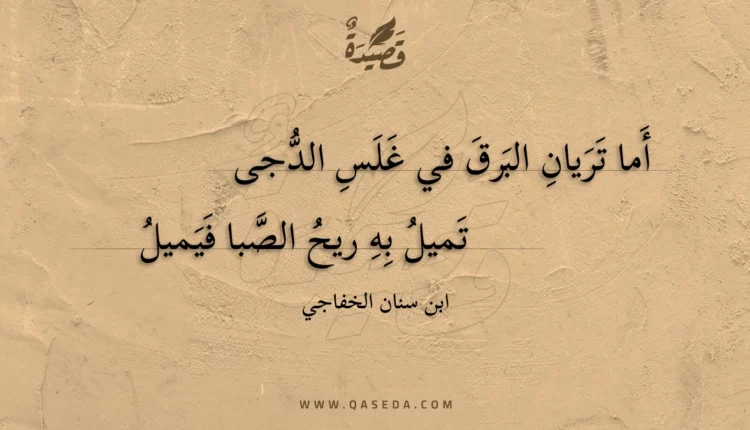 قَصِيدَةٌ
أَما تَرَيانِ البَرقَ في غَلَسِ الدُّجى
تَميلُ بِهِ ريحُ الصَّبا فَيَميلُ
ابن سنان الخفاجي
WWW.QASEDA.COM